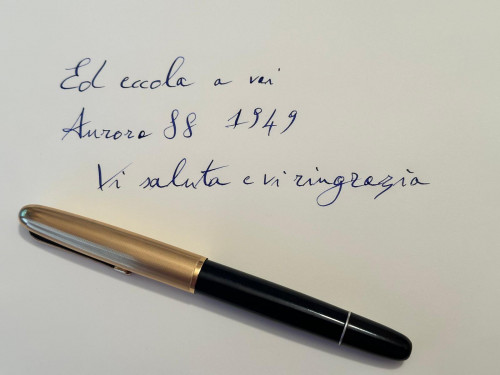 Ed eccola a voi
Aurora 88 1949
Vi saluta e vi ringrazia